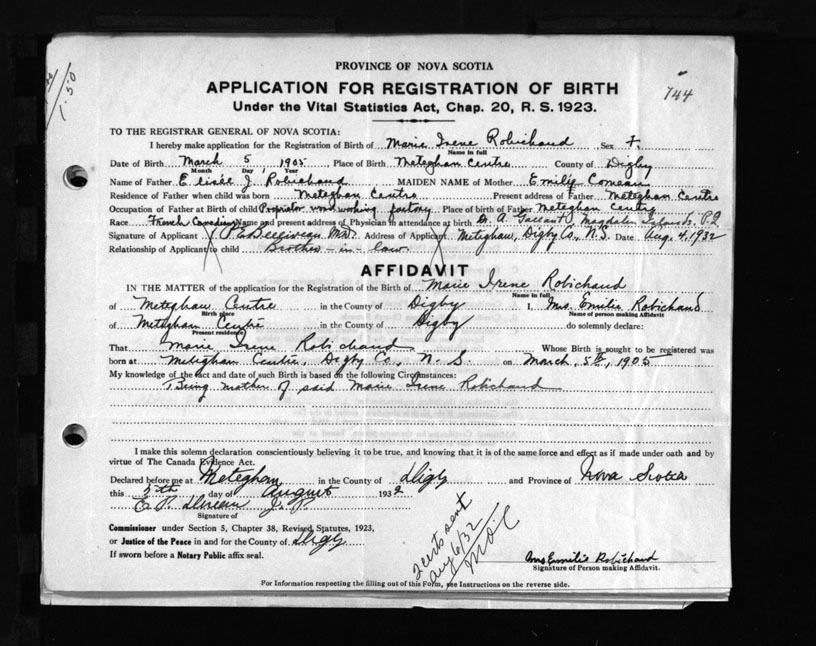 1.50
744
PROVINCE OF NOVA SCOTIA
APPLICATION FOR REGISTRATION OF BIRTH
Under the Vital Statistics Act, Chap. 20, R. S. 1923.
TO THE REGISTRAR GENERAL OF NOVA SCOTIA:
I hereby make application for the Registration of Birth of Marie Irene Robichaud Sex F.
Name in full
Date of Birth March 5 1905 Place of Birth Meteghan Centre County of Digby
Month Day Year
Name of Father Elisée J. Robichaud MAIDEN NAME of Mother Emilie Comeau
Residence of Father when child was born Meteghan Centre Present address of Father Meteghan Centre
Occupation of Father at Birth of child Proprietor wood working factory Place of birth of Father Meteghan Centre
Race French Canadian Name and present address of Physician in attendance at birth Magdalen Islands, P.Q.
Signature of Applicant P. E. Belliveau M.D. Address of Applicant Meteghan, Digby Co., N.S. Date Aug. 4, 1932
Relationship of Applicant to child Brother-in-law
AFFIDAVIT
IN THE MATTER of the application for the Registration of the Birth of Marie Irene Robichaud
Name in full
of Meteghan Centre in the County of Digby I, Mrs. Emilie Robichaud
Birth place Name of person making Affidavit
of Meteghan Centre in the County of Digby do solemnly declare:
Present residence
That Marie Irene Robichaud Whose Birth is sought to be registered was
born at Meteghan Centre, Digby Co., N. S. on March, 5th, 1905
My knowledge of the fact and date of such Birth is based on the following Circumstances:
Being mother of said Marie Irene Robichaud
I make this solemn declaration conscientiously believing it to be true, and knowing that it is of the same force and effect as if made under oath and by
virtue of The Canada Evidence Act.
Declared before me at Meteghan in the County of Digby and Province of Nova Scotia
this 5th day of August 1932
J. P.
Signature of
Commissioner under Section 5, Chapter 38, Revised Statutes, 1923,
or Justice of the Peace in and for the County of Digby
If sworn before a Notary Public affix seal.
2 certs sent
Aug 6/32
Mrs Emilie Robichaud
Signature of Person making Affidavit.
For Information respecting the filling out of this Form, see Instructions on the reverse side.